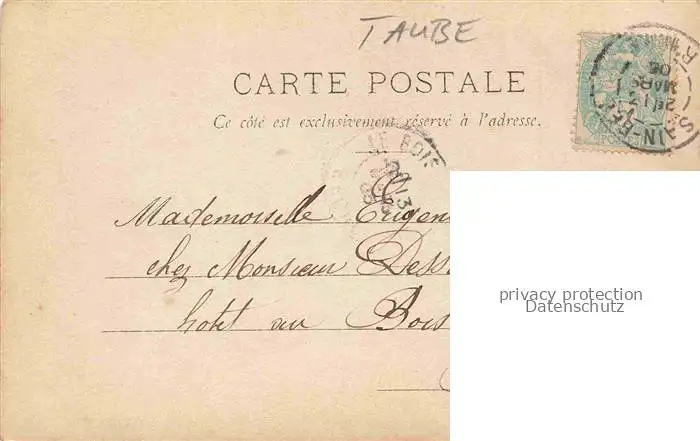 TAUBE
CARTE POSTALE
Ce côté est exclusivement réservé à l'adresse.
LE BOIS
Mademoiselle
chez Monsieur
hotel au Bois
privacy protection
Datenschutz